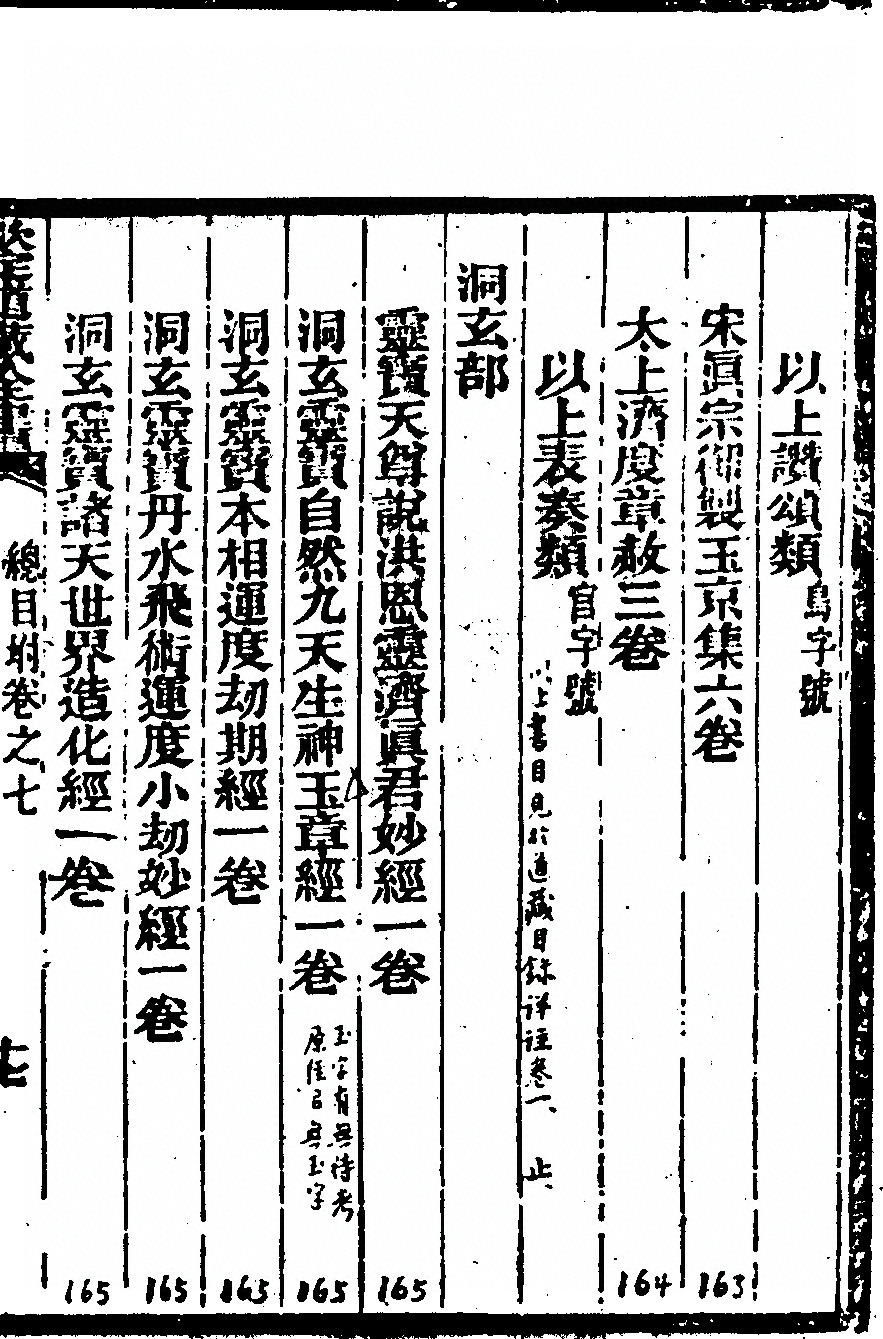 以上讚頌類 鳥字號
宋眞宗御製玉京集六卷 163
太上濟度章赦三卷 164
以上表奏類 官字號
以上書目見於道藏目錄詳註卷一、止、
洞玄部
靈寶天尊說洪恩靈濟眞君妙經一卷 165
洞玄靈寶自然九天生神玉章經一卷 玉字有無待考 原經名無玉字 165
洞玄靈寶本相運度刧期經一卷 165
洞玄靈寶丹水飛術運度小刧妙經一卷 165
洞玄靈寶諸天世界造化經一卷 165
總目坿卷之七